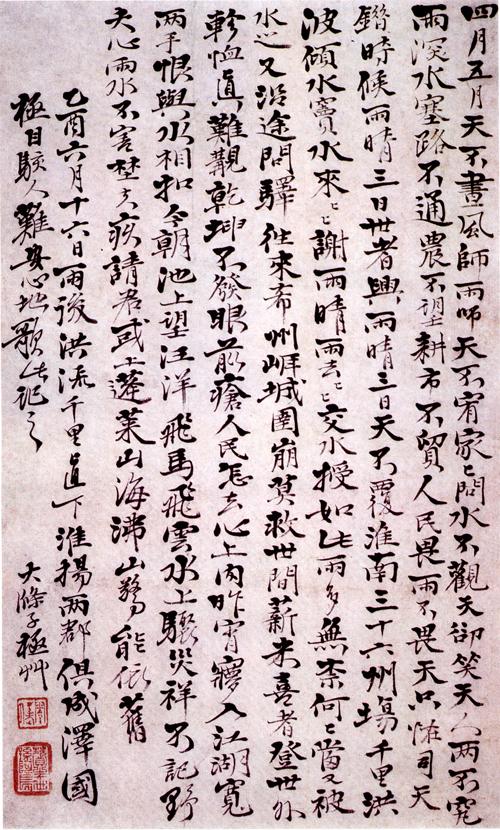 四月五月天不晝風師雨師天不宥家〻問水不觀天卻笑天人兩不究
雨深水塞路不通農不望耕市不貿人民畏雨不畏天只恠司天
錯時候雨晴三日世者興雨晴三日天不覆淮南三十六州場千里洪
波傾水竇水來〻謝雨晴雨去〻交水授如此雨多無柰何〻當又被
水〻又沿途問驛往來希州崕城圍崩莫救世間薪米喜者登世外
軫恤真難覯乾坤不發眼前瘡人民怎去心上肉昨宵寢入江湖寬
兩手恨與水相扣今朝池上望汪洋飛馬飛雲水上驟災祥不記野
夫心雨水不害埜夫疾請君或上蓬萊山海沸山驚能依舊
乙酉六月十六日雨後洪流千里直下淮揚兩郡俱成澤國
極目駭人難安心地歌此記之
大滌子極艸